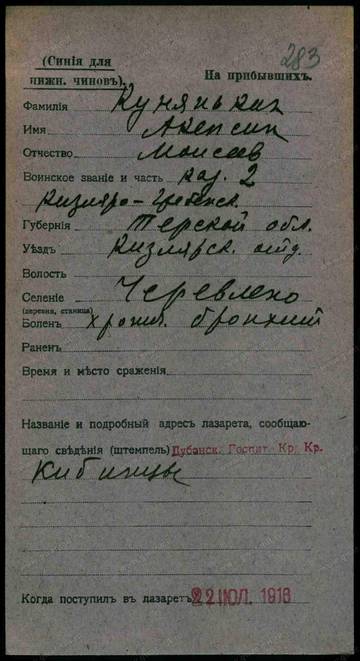 283
(Синія для
нижн. чиновъ).
На прибывшихъ.
Фамилія Кунянькаг
Имя Алексии
Отчество Моисеев
Воинское званіе и часть каз. 2
Кизляро-Гребенск.
Губернія Терской обл.
Уѣздъ Кизлярск. отд.
Волость
Селеніе Червлено
(деревня, станица)
Боленъ хронич. бронхит
Раненъ
Время и мѣсто сраженія
Названіе и подробный адресъ лазарета, сообщаю-
щаго свѣдѣнія (штемпель) Лубенск. Госпит. Кр. Кр.
Кибинцы
Когда поступилъ въ лазаретъ 22 ІЮЛ. 1916